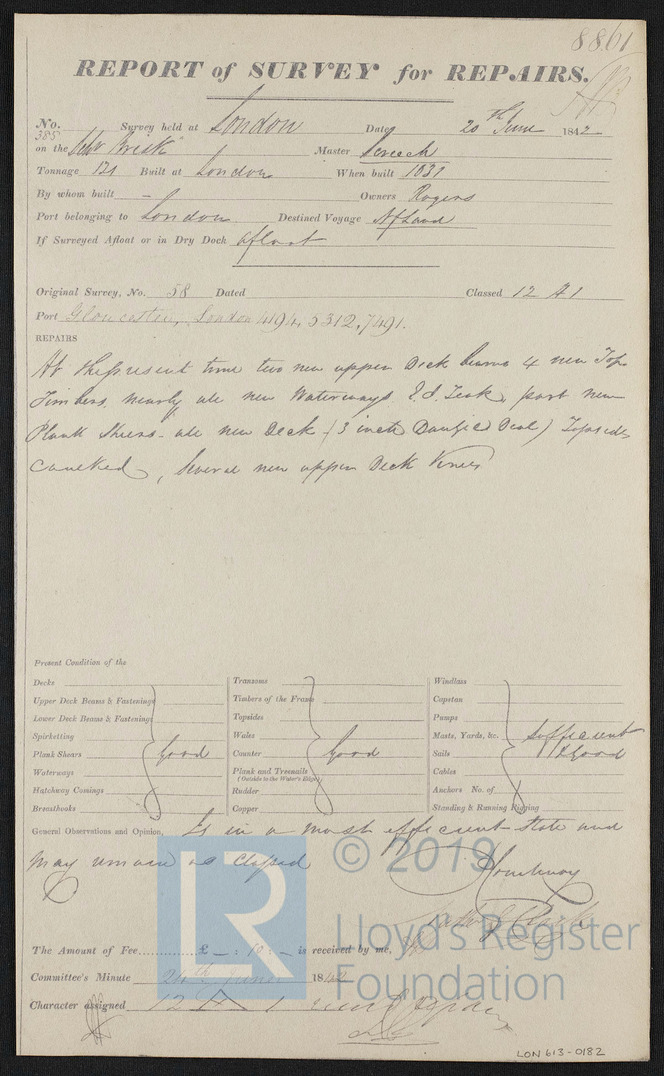 8861
REPORT of SURVEY for REPAIRS.
No. 385 Survey held at London Date, 20th June 1842
on the Schr Brisk Master Screech
Tonnage 121 Built at London When built 1831
By whom built - Owners Rogers
Port belonging to London Destined Voyage
If Surveyed Afloat or in Dry Dock afloat
Original Survey, No. 58 Dated Classed 12 A1
Port Gloucester, London 4194, 5312, 7491.
REPAIRS
At the present time two new upper Deck beams 4 new Top
Timbers, nearly all new Waterways part new
Plank Sheers - all new Deck (3 inch Deal) Topsides
Caulked, Several new upper Deck Knees
Present Condition of the
Decks
Upper Deck Beams & Fastenings
Lower Deck Beams & Fastenings
Spirketting
Plank Shears Good
Waterways
Hatchway Comings
Breasthooks
Transoms
Timbers of the Frame
Topsides
Wales
Counter Good
Plank and Treenails
(Outside to the Water's Edge)
Rudder
Copper
Windlass
Capstan
Pumps
Masts, Yards, &c. Sufficient
Sails & Good
Cables
Anchors No. of
Standing & Running Rigging
General Observations and Opinion, Is in a most efficient state and
may remain as Classed
© 2019
Courtenay
LR
Lloyd's Register
Foundation
The Amount of Fee............£ - : 10 : - is received by me,
Committee's Minute 24th June 1842
Character assigned 12 A 1
LON 613-0182